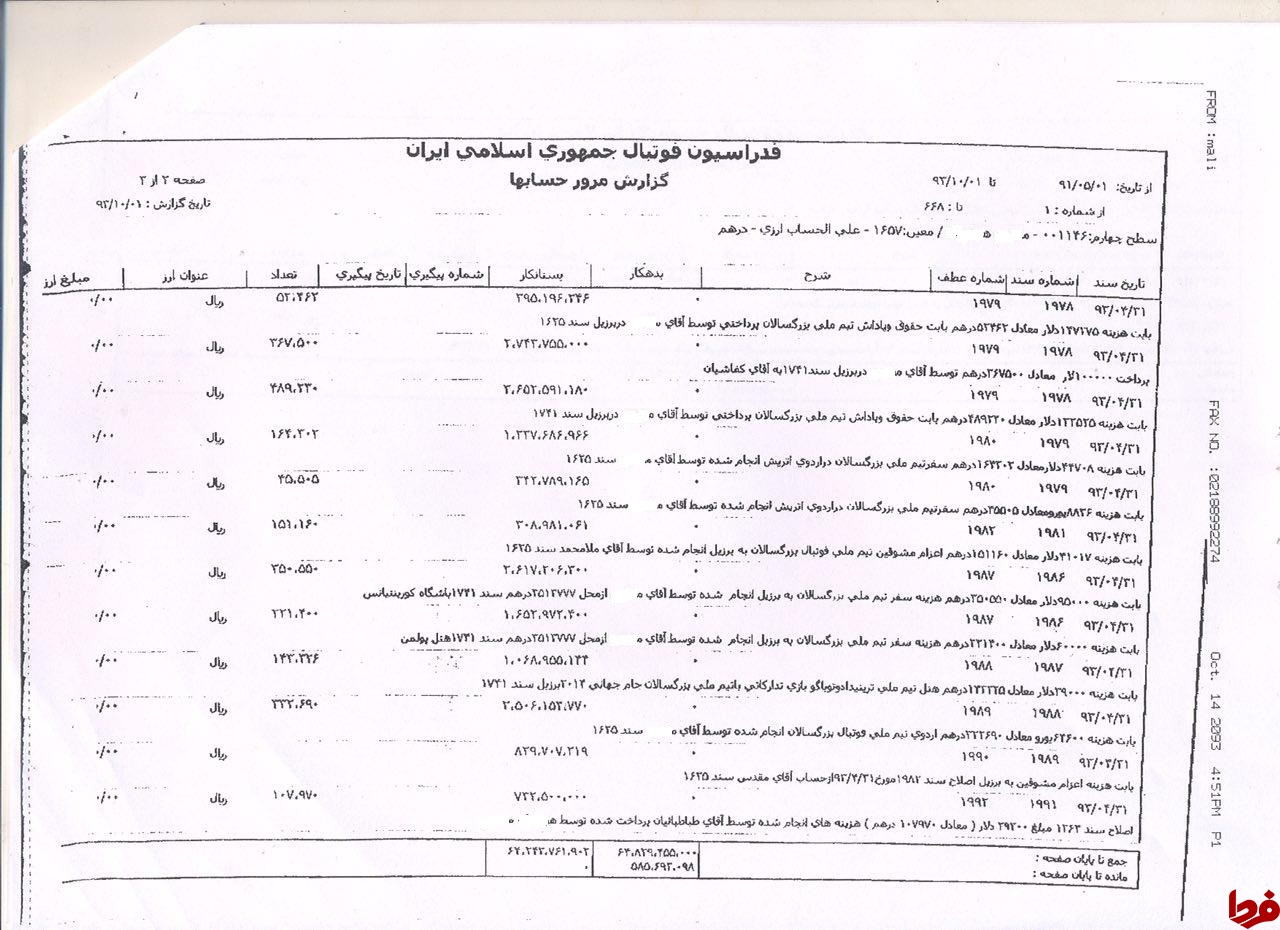 فدراسيون فوتبال جمهوري اسلامي ايران
گزارش مرور حسابها
از تاريخ: ۹۱/۰۵/۰۱ تا ۹۳/۱۰/۰۱
صفحه ۲ از ۳
از شماره : ۱ تا : ۶۶۸
تاريخ گزارش : ۹۳/۱۰/۰۱
سطح چهارم:۰۰۱۱۴۶ - مـ هـ / معين:۱۶۵۷ - علي الحساب ارزي - درهم
تاريخ سند شماره سند شماره عطف شرح بدهكار بستانكار شماره پيگيري تاريخ پيگيري تعداد عنوان ارز مبلغ ارز
۹۳/۰۴/۳۱ ۱۹۷۸ ۱۹۷۹ ۰ ۳۹۵،۱۹۶،۲۴۶ ۵۲،۴۶۲ ريال ۰/۰۰
بابت هزينه ۱۴۷۱۷۵دلار معادل ۵۲۴۶۲درهم بابت حقوق وپاداش تيم ملي بزرگسالان پرداختي توسط آقاي مـ دربرزيل سند ۱۶۲۵
۹۳/۰۴/۳۱ ۱۹۷۸ ۱۹۷۹ ۰ ۲،۷۴۳،۷۵۵،۰۰۰ ۳۶۷،۵۰۰ ريال ۰/۰۰
پرداخت ۱۰۰۰۰۰لار معادل ۳۶۷۵۰۰درهم توسط آقاي مـ دربرزيل سند۱۷۴۱به آقاي كفاشيان
۹۳/۰۴/۳۱ ۱۹۷۸ ۱۹۷۹ ۰ ۳،۶۵۲،۵۹۱،۱۸۰ ۴۸۹،۲۳۰ ريال ۰/۰۰
بابت هزينه ۱۳۲۵۲۵دلار معادل ۴۸۹۲۳۰درهم بابت حقوق وپاداش تيم ملي بزرگسالان پرداختي توسط آقاي مـ دربرزيل سند ۱۷۴۱
۹۳/۰۴/۳۱ ۱۹۷۹ ۱۹۸۰ ۰ ۱،۲۳۷،۶۸۶،۹۶۶ ۱۶۴،۳۰۲ ريال ۰/۰۰
بابت هزينه ۴۴۷۰۸دلارمعادل ۱۶۴۳۰۲درهم سفرتيم ملي بزرگسالان دراردوي اتريش انجام شده توسط آقاي مـ سند ۱۶۲۵
۹۳/۰۴/۳۱ ۱۹۷۹ ۱۹۸۰ ۰ ۳۴۲،۷۸۹،۱۶۵ ۴۵،۵۰۵ ريال ۰/۰۰
بابت هزينه ۸۸۳۶يورومعادل ۴۵۵۰۵درهم سفرتيم ملي بزرگسالان دراردوي اتريش انجام شده توسط آقاي مـ سند ۱۶۲۵
۹۳/۰۴/۳۱ ۱۹۸۱ ۱۹۸۲ ۰ ۳۰۸،۹۸۱،۰۶۱ ۱۵۱،۱۶۰ ريال ۰/۰۰
بابت هزينه ۴۱۰۱۷دلار معادل ۱۵۱۱۶۰درهم اعزام مشوقين تيم ملي فوتبال بزرگسالان به برزيل انجام شده توسط آقاي ملامحمد سند ۱۶۲۵
۹۳/۰۴/۳۱ ۱۹۸۶ ۱۹۸۷ ۰ ۲،۶۱۷،۲۰۶،۳۰۰ ۳۵۰،۵۵۰ ريال ۰/۰۰
بابت هزينه ۹۵۰۰۰دلار معادل ۳۵۰۵۵۰درهم هزينه سفر تيم ملي بزرگسالان به برزيل انجام شده توسط آقاي مـ ازمحل ۲۵۱۳۷۷۷درهم سند ۱۷۴۱باشگاه كورينتيانس
۹۳/۰۴/۳۱ ۱۹۸۶ ۱۹۸۷ ۰ ۱،۶۵۲،۹۷۲،۴۰۰ ۲۲۱،۴۰۰ ريال ۰/۰۰
بابت هزينه ۶۰۰۰۰دلار معادل ۲۲۱۴۰۰درهم هزينه سفر تيم ملي بزرگسالان به برزيل انجام شده توسط آقاي مـ ازمحل ۲۵۱۳۷۷۷درهم سند ۱۷۴۱هتل پولمن
۹۳/۰۴/۳۱ ۱۹۸۷ ۱۹۸۸ ۰ ۱،۰۶۸،۹۵۵،۱۴۴ ۱۴۳،۲۲۶ ريال ۰/۰۰
بابت هزينه ۳۹۰۰۰دلار معادل ۱۴۳۲۲۵درهم هتل تيم ملي ترينيدادوتوباگو بازي تداركاتي باتيم ملي بزرگسالان جام جهاني ۲۰۱۴برزيل سند ۱۷۴۱
۹۳/۰۴/۳۱ ۱۹۸۸ ۱۹۸۹ ۰ ۲،۵۰۶،۱۵۳،۷۷۰ ۳۳۲،۶۹۰ ريال ۰/۰۰
بابت هزينه ۶۴۶۰۰يورو معادل ۳۳۲۶۹۰درهم اردوي تيم ملي فوتبال بزرگسالان انجام شده توسط آقاي مـ سند ۱۶۲۵
۹۳/۰۴/۳۱ ۱۹۸۹ ۱۹۹۰ ۰ ۸۲۹،۷۰۷،۲۱۹ ريال ۰/۰۰
بابت هزينه اعزام مشوقين به برزيل اصلاح سند ۱۹۸۲مورخ۹۳/۴/۳۱ازحساب آقاي مقدس سند ۱۶۲۵
۹۳/۰۴/۳۱ ۱۹۹۱ ۱۹۹۲ ۰ ۷۳۲،۵۰۰،۰۰۰ ۱۰۷،۹۷۰ ريال ۰/۰۰
اصلاح سند ۱۲۶۳ مبلغ ۲۹۳۰۰ دلار ( معادل ۱۰۷۹۷۰ درهم ) هزينه هاي انجام شده توسط آقاي طباطبائيان پرداخت شده توسط هـ
جمع تا پايان صفحه : ۶۴،۸۲۹،۴۵۵،۰۰۰ ۶۴،۲۴۳،۷۶۱،۹۰۲
مانده تا پايان صفحه : ۵۸۵،۶۹۳،۰۹۸ ۰
FROM :mali FAX NO. :02188992274 Oct. 14 2093 4:51PM P1
فردا